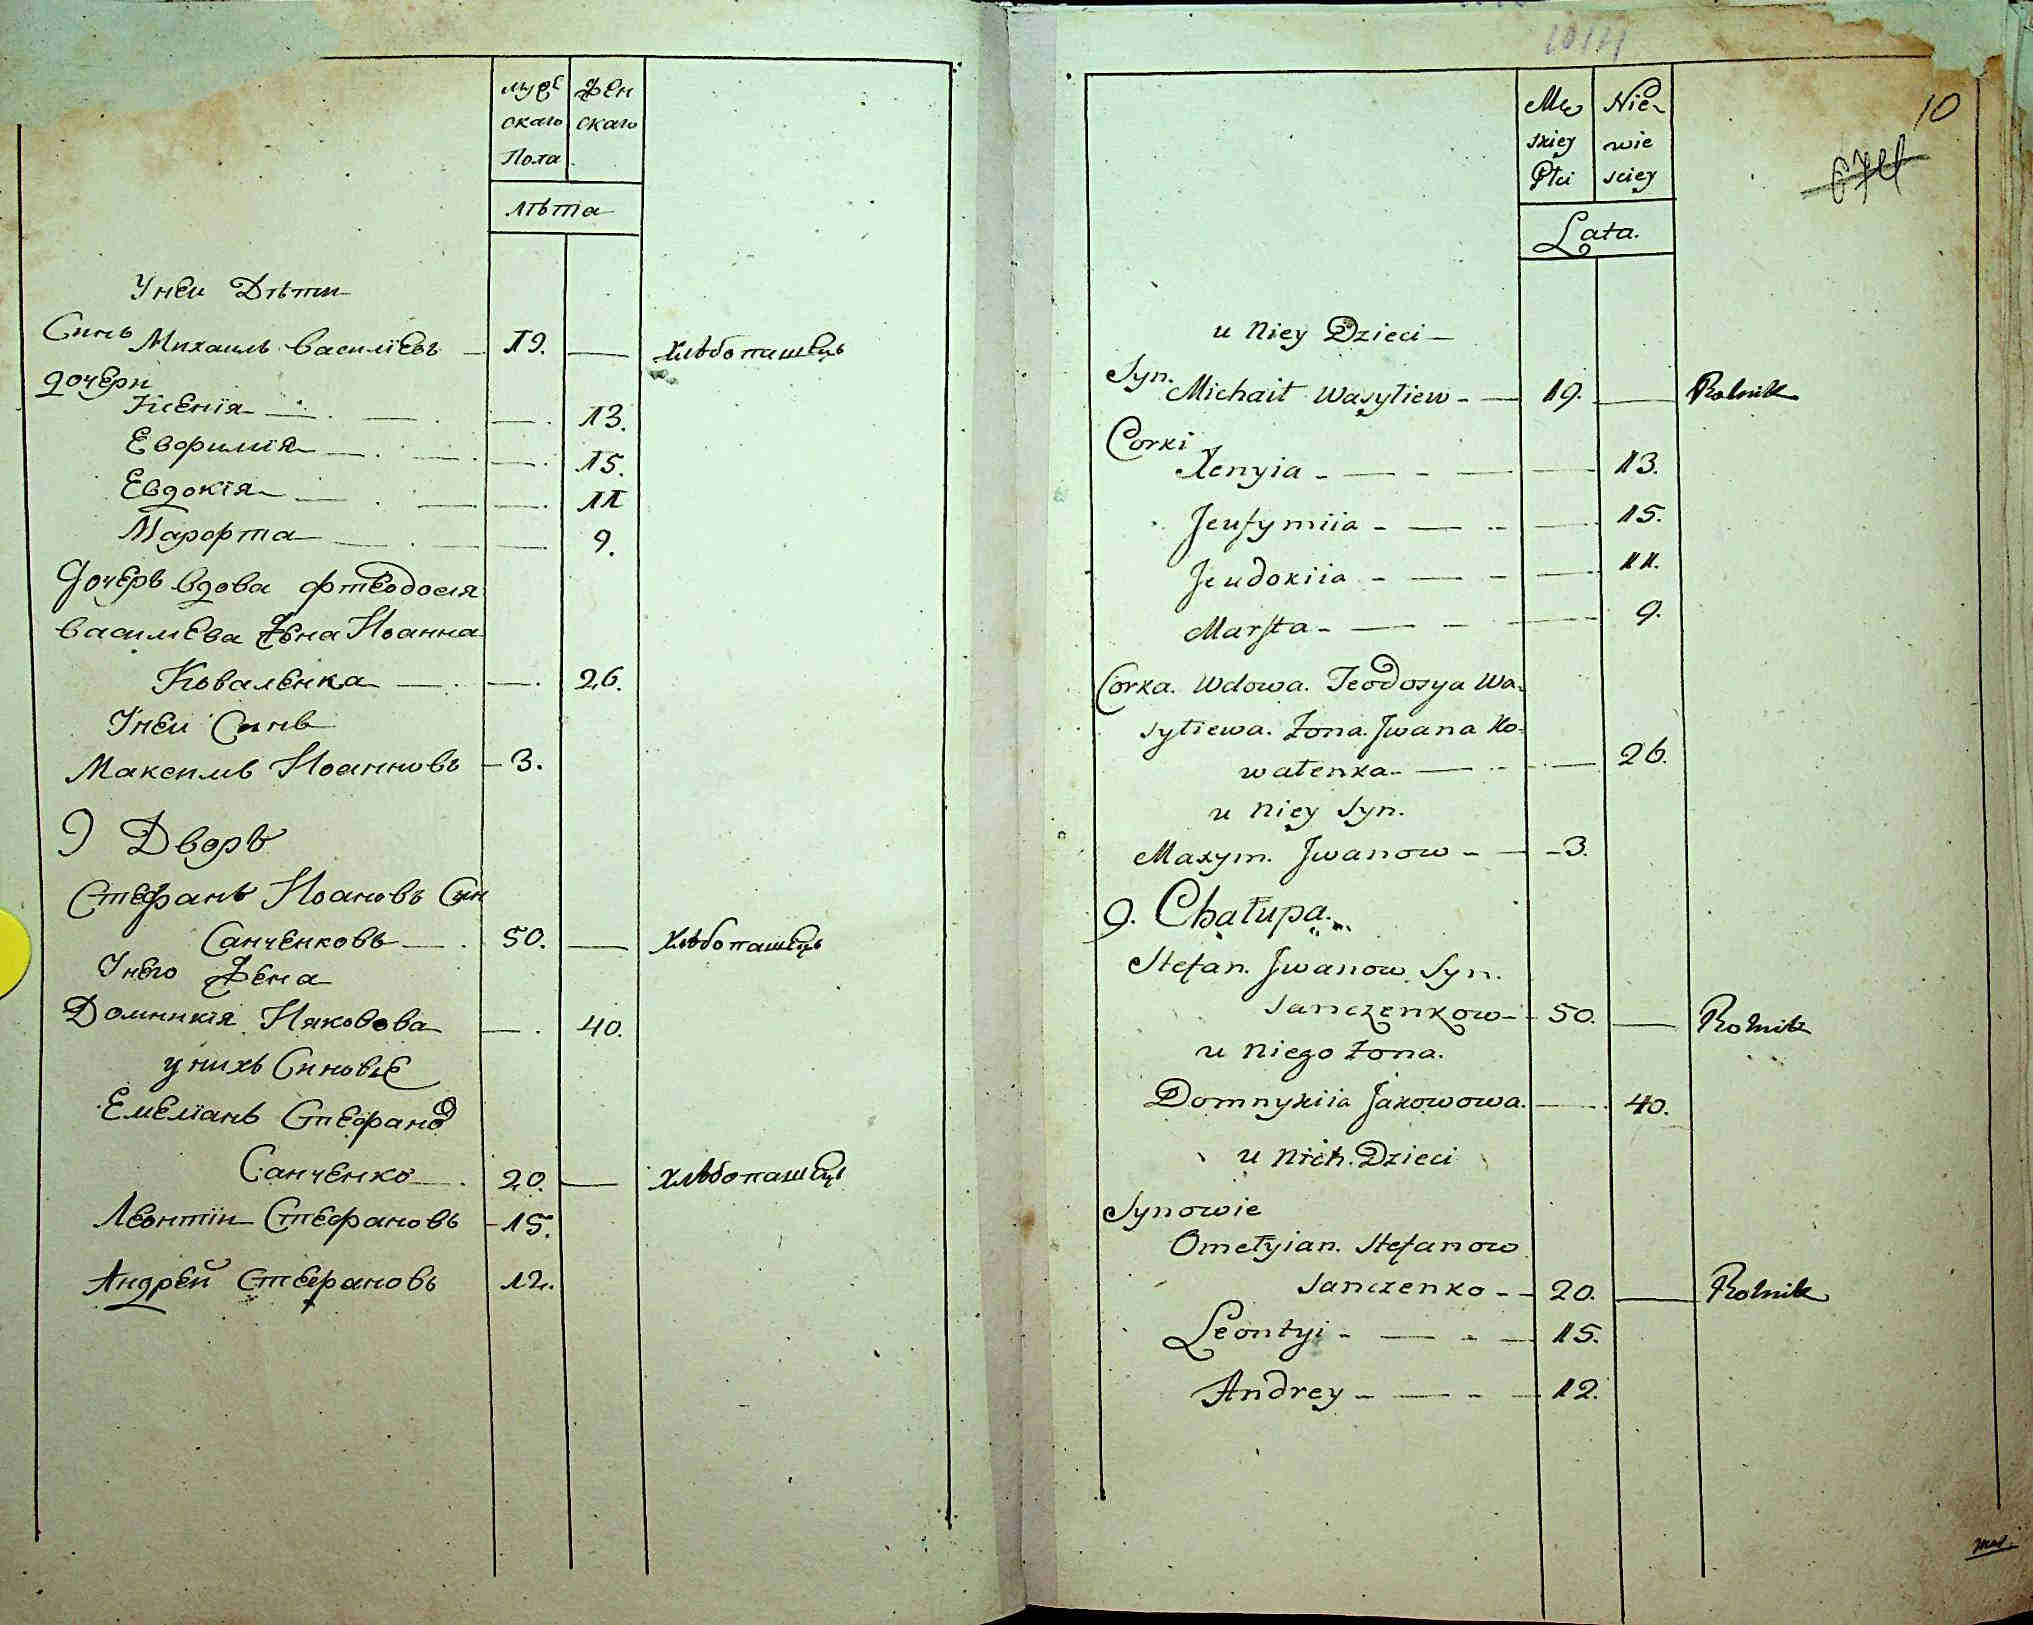 мужскаго Полa
женскаго
лѣта
У неи Дѣти
Синъ Михаилъ Василіевъ — 19. — хлѣбопашецъ
дочери
Ксенія — — 13.
Евфимія — — 15.
Евдокія — — 11
Марфта — — 9.
Дочерь вдова Фтеодосия
василиева жена Иоанна
Коваленка — — 26.
У неи Синъ
Максимъ Иоанновъ — 3.
9 Дворъ
Стефанъ Иоановъ Син
Санченковъ — 50. — хлѣбопашецъ
У него жена
Домникія Ияковова — 40.
у нихъ Синовѣ
Емеліанъ Стефано
Санченко — 20. — хлѣбопашецъ
Леонтіи Стефановъ — 15.
Андрей Стефановъ 12.
10
Męskiey Płci
Niewiesciey
Lata.
u Niey Dzieci —
Syn. Michaił Wasyliew — 19. — Rolnik
Corki
Xenyia — — 13.
Jeufymiia — — 15.
Jeudokiia — — 11.
Marfta — — 9.
Corka. Wdowa. Teodosya Wa-
syliewa. Żona. Jwana Ko-
walenka — — 26.
u Niey Syn.
Maxym. Jwanow — 3.
9. Chałupa.
Stefan. Jwanow Syn.
Sanczenkow — 50. — Rolnik
u Niego Żona.
Domnykiia Jakowowa. — 40.
u Nich. Dzieci
Synowie
Omelyian. Stefanow
Sanczenko — 20. — Rolnik
Leontyi — — 15.
Andrey — — 12.